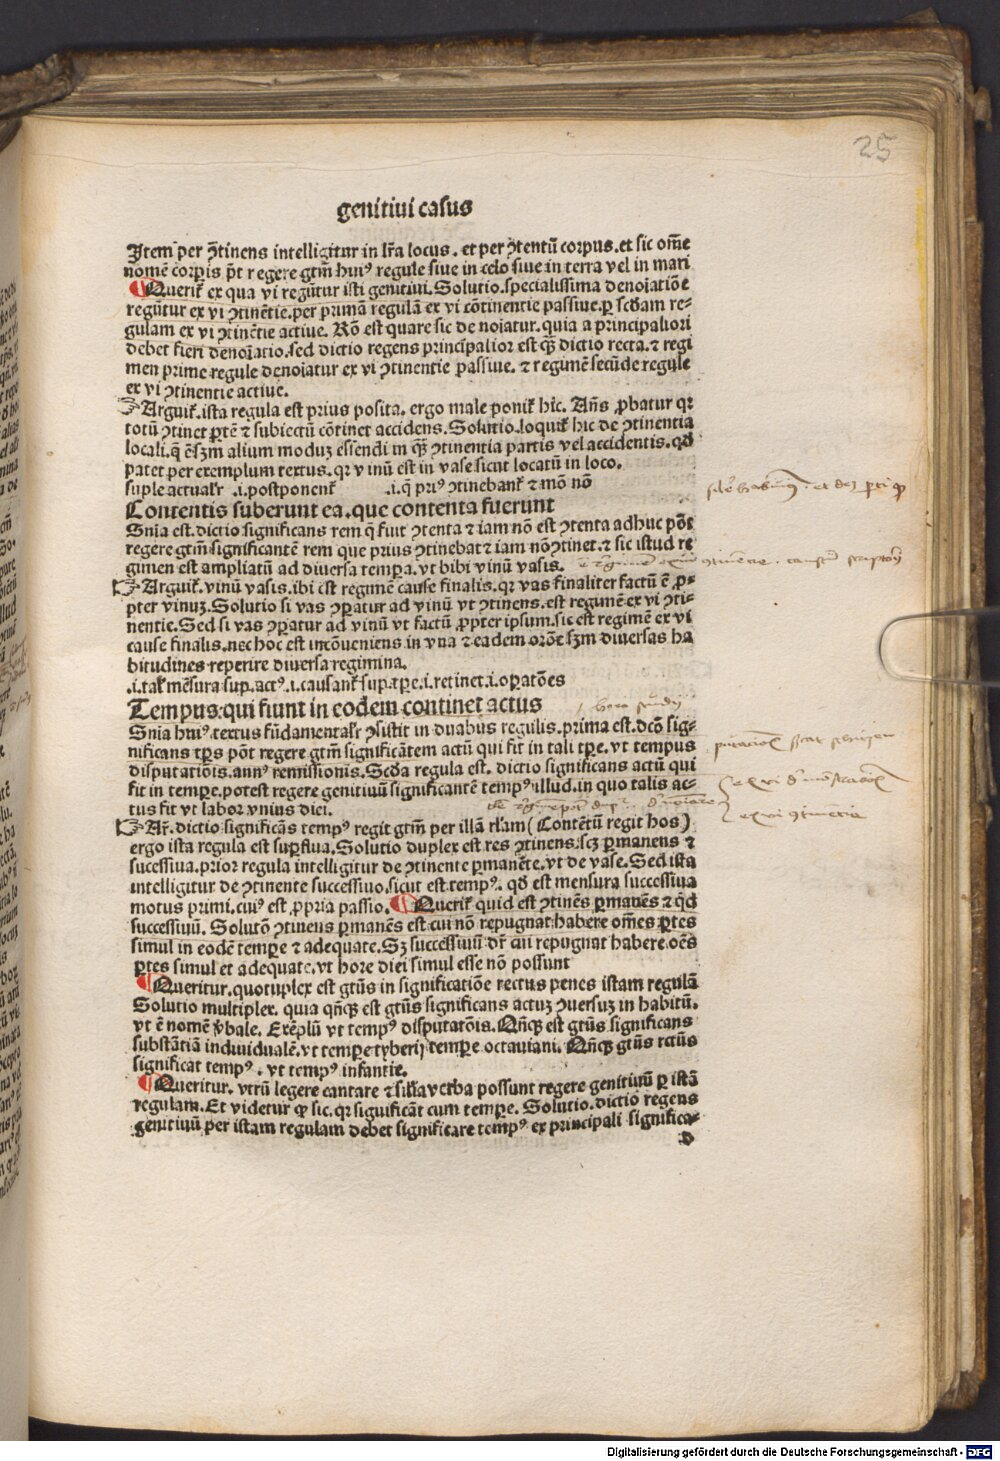 25
genitiui casus
Item per ↄ̃tinens intelligitur in lr̃a locus. et per ↄtentũ corpus. et sic om̃e
nomẽ corp̲is p̃t regere gt̃m huiꝰ regule siue in celo siue in terra vel in mari
¶ Queriť ex qua vi regũtur isti genitiui. Solutio. specialissima denoiatiõe
regũtur ex vi ↄtinẽtie. per primã regulã ex vi cõtinentie passiue. ꝑ scďam re⸗
gulam ex vi ↄtinẽtie actiue. Rõ est quare sic de noiatur. quia a principaliori
debet fieri denoiatio. sed dictio regens principalior est qꝫ̃ dictio recta. ⁊ regi
men prime regule denoiatur ex vi ↄtinentie ꝑassiue. ⁊ regimẽ secũde regule
ex vi ↄtinentie actiue.
☞ Arguiť. ista regula est prius posita. ergo male poniť hic̃. Añs ꝓbatur qꝛ
totũ ↄtinet ꝑtẽ ⁊ subiectũ cõtinet accidens. Solutio. loquiť hic de ↄtinentia
locali. q̃ ẽ sꝫm alium moduꝫ essendi in qꝫ̃ ↄtinentia partis vel accidentis. qď
patet per exemplum textus. qꝛ vinũ est in vase sicut locatũ in loco.
suple actualr̃ .i. postponenť .i. q̃ priꝰ ↄtinebanť ⁊ mõ nõ
Contentis suberunt ea. que contenta fuerunt
Snĩa est. dictio significans rem q̃ fuit ↄtenta ⁊ iam nõ est ↄtenta adhuc põt
regere gt̃m significantẽ rem que prius ↄtinebat ⁊ iam nõ ↄtinet. ⁊ sic istud re
gimen est ampliatũ ad diuersa tempa. vt bibi vinũ vasis.
☞ Arguiť. vinũ vasis. ibi est regimẽ cause finalis. qꝛ vas finaliter factũ ẽ ꝓ⸗
pter vinuꝫ. Solutio si vas ↄꝑatur ad vinũ vt ↄtinens. est regimẽ ex vi ↄti⸗
nentie. Sed si vas ↄꝑatur ad vinũ vt factũ ꝓpter ipsum. sic est regimẽ ex vi
cause finalis. nec hoc est incõueniens in vna ⁊ eadem orõe sꝫm diuersas ha
bitudines reperire diuersa regimina.
.i. tal̃ mẽsura sup. actꝰ .i. causanť sup. tꝑe .i. retinet .i. oꝑatões
Tempus qui fiunt in eodem continet actus
Snĩa huiꝰ textus fũdamentalr̃ ↄsistit in duabus regulis. prima est. dcõ sig⸗
nificans tꝑs põt regere gt̃m significãtem actũ qui fit in tali tꝑe. vt tempus
disputatiõis. annꝰ remissionis. Scďa regula est. dictio significans actũ qui
fit in tempe. potest regere genitiuũ significantẽ tempꝰ illud. in quo talis ac⸗
tus fit vt labor vnius diei.
☞ Ar̃. dictio significãs tempꝰ regit gt̃m per illã rl̃am (Contẽtũ regit hos)
ergo ista regula est suꝑflua. Solutio duplex est res ↄtinens. scꝫ ꝑmanens ⁊
successiua. prior regula intelligitur de ↄtinente ꝑmanẽte. vt de vase. Sed ista
intelligitur de ↄtinente successiuo. sicut est tempꝰ. qď est mensura successiua
motus primi. cuiꝰ est ꝓpria passio. ¶ Queriť quid est ↄtinẽs ꝑmanẽs ⁊ qd
successiuũ. Solutõ ↄtinens ꝑmanẽs est cui nõ repugnat habere om̃es ꝑtes
simul in eodẽ tempe ⁊ adequate. Sꝫ successiuũ dr̃ cui repugnat habere oẽs
ꝑtes simul et adequate. vt hore diei simul esse nõ possunt
¶ Queritur. quotuplex est gt̃us in significatiõe rectus penes istam regulã
Solutio multiplex. quia qñqꝫ est gt̃us significans actuꝫ ↄuersuꝫ in habitũ.
vt ẽ nomẽ v̓bale. Exẽplũ vt tempꝰ disputatõis. Qñqꝫ est gt̃us significans
substãtiã indiuidualẽ. vt tempe tyberij tempe octauiani. Qñqꝫ gt̃us rctũs
significat tempꝰ. vt tempꝰ infantie.
¶ Queritur. vtrũ legere cantare ⁊ sil̃ia verba possunt regere genitiuũ ꝑ istã
regulam. Et videtur ꝙ sic. qꝛ significãt cum tempe. Solutio. dictio regens
genitiuũ per istam regulam debet significare tempꝰ ex principali significa⸗
d
Digitalisierung gefördert durch die Deutsche Forschungsgemeinschaft - DFG